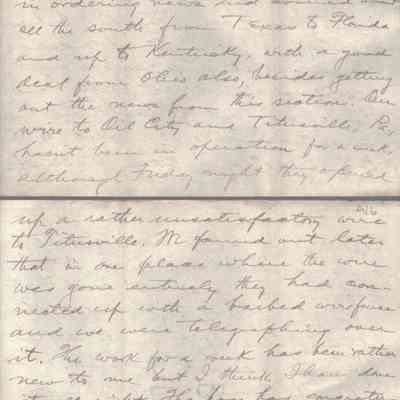 in ordering news and
all the south from Texas to Florida
and up to Kentucky, with a good
deal from Ohio also, besides getting
out the news from this section. Our
wire to Oil City and Titusville, Pa,
hasn't been in operation for a week,
although Friday night they opened
up a rather unsatisfactory wire
to Titusville. We found out later
that in one place where the wire
was gone entirely they had con-
nected up with a barbed wire fence
and we were telegraphing over
it. The work for a week has been rather
new to me but I think I have done
it all right. The boss has